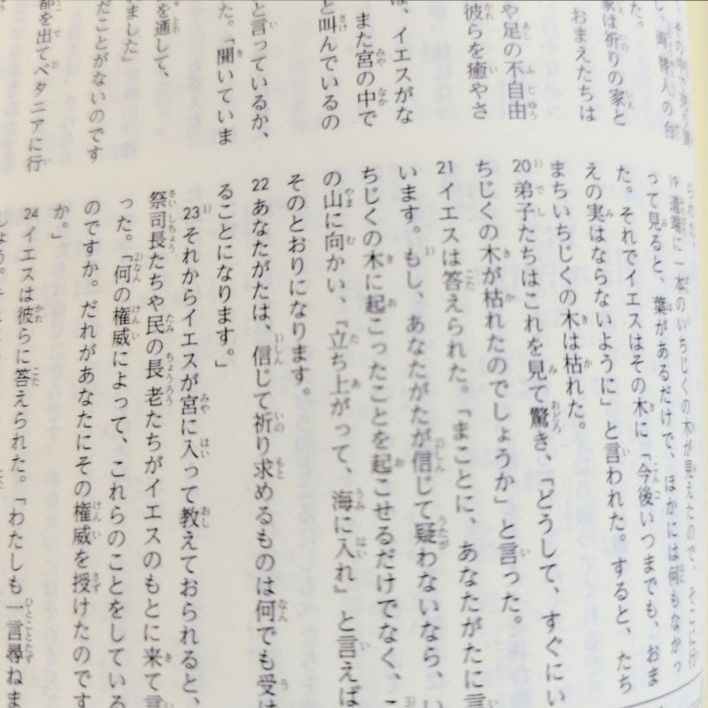 し、両替人の台
た。
家は祈りの家と
おまえたちは
や足の不自由
彼らを癒やさ
は、イエスがな
また宮の中で
と叫んでいるの
と言っているか、
た。「聞いていま
を通して、
ました』
だことがないのです
都を出てベタニアに行
19 道端に一本のいちじくの木が見えたので、そこに行
って見ると、葉があるだけで、ほかには何もなかっ
た。それでイエスはその木に「今後いつまでも、おま
えの実はならないように」と言われた。すると、たち
まちいちじくの木は枯れた。
20 弟子たちはこれを見て驚き、「どうして、すぐにい
ちじくの木が枯れたのでしょうか」と言った。
21 イエスは答えられた。「まことに、あなたがたに言
います。もし、あなたがたが信じて疑わないなら、い
ちじくの木に起こったことを起こせるだけでなく、こ
の山に向かい、『立ち上がって、海に入れ』と言えば、
そのとおりになります。
22 あなたがたは、信じて祈り求めるものは何でも受け
ることになります。」
23 それからイエスが宮に入って教えておられると、
祭司長たちや民の長老たちがイエスのもとに来て言
った。「何の権威によって、これらのことをしている
のですか。だれがあなたにその権威を授けたのです
か。」
24 イエスは彼らに答えられた。「わたしも一言尋ねま
しょう。